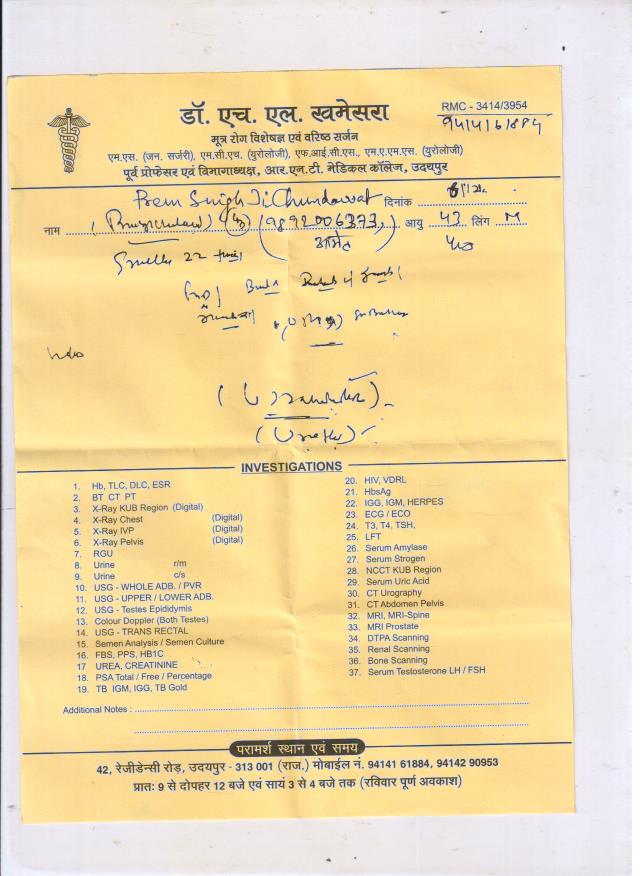 डॉ. एच. एल. खमेसरा
RMC - 3414/3954
9414161884
मूत्र रोग विशेषज्ञ एवं वरिष्ठ सर्जन
एम.एस. (जन. सर्जरी), एम.सी.एच. (युरोलोजी), एफ.आई.सी.एस., एम.ए.एम.एस. (युरोलोजी)
पूर्व प्रोफेसर एवं विभागाध्यक्ष, आर.एन.टी. मेडिकल कॉलेज, उदयपुर
Prem Singh Ji Chundawat दिनांक
नाम (9892006373, आयु 43 लिंग M
आमेट
(Urethra)
INVESTIGATIONS
1. Hb, TLC, DLC, ESR
2. BT CT PT
3. X-Ray KUB Region (Digital)
4. X-Ray Chest (Digital)
5. X-Ray IVP (Digital)
6. X-Ray Pelvis (Digital)
7. RGU
8. Urine r/m
9. Urine c/s
10. USG - WHOLE ADB. / PVR
11. USG - UPPER / LOWER ADB.
12. USG - Testes Epididymis
13. Colour Doppler (Both Testes)
14. USG - TRANS RECTAL
15. Semen Analysis / Semen Culture
16. FBS, PPS, HB1C
17 UREA, CREATININE
18. PSA Total / Free / Percentage
19. TB IGM, IGG, TB Gold
20. HIV, VDRL
21. HbsAg
22. IGG, IGM, HERPES
23. ECG / ECO
24. T3, T4, TSH,
25. LFT
26. Serum Amylase
27. Serum Strogen
28. NCCT KUB Region
29. Serum Uric Acid
30. CT Urography
31. CT Abdomen Pelvis
32. MRI, MRI-Spine
33. MRI Prostate
34. DTPA Scanning
35. Renal Scanning
36. Bone Scanning
37. Serum Testosterone LH / FSH
Additional Notes :
परामर्श स्थान एवं समय
42, रेजीडेन्सी रोड़, उदयपुर - 313 001 (राज.) मोबाईल नं. 94141 61884, 94142 90953
प्रातः 9 से दोपहर 12 बजे एवं सायं 3 से 4 बजे तक (रविवार पूर्ण अवकाश)